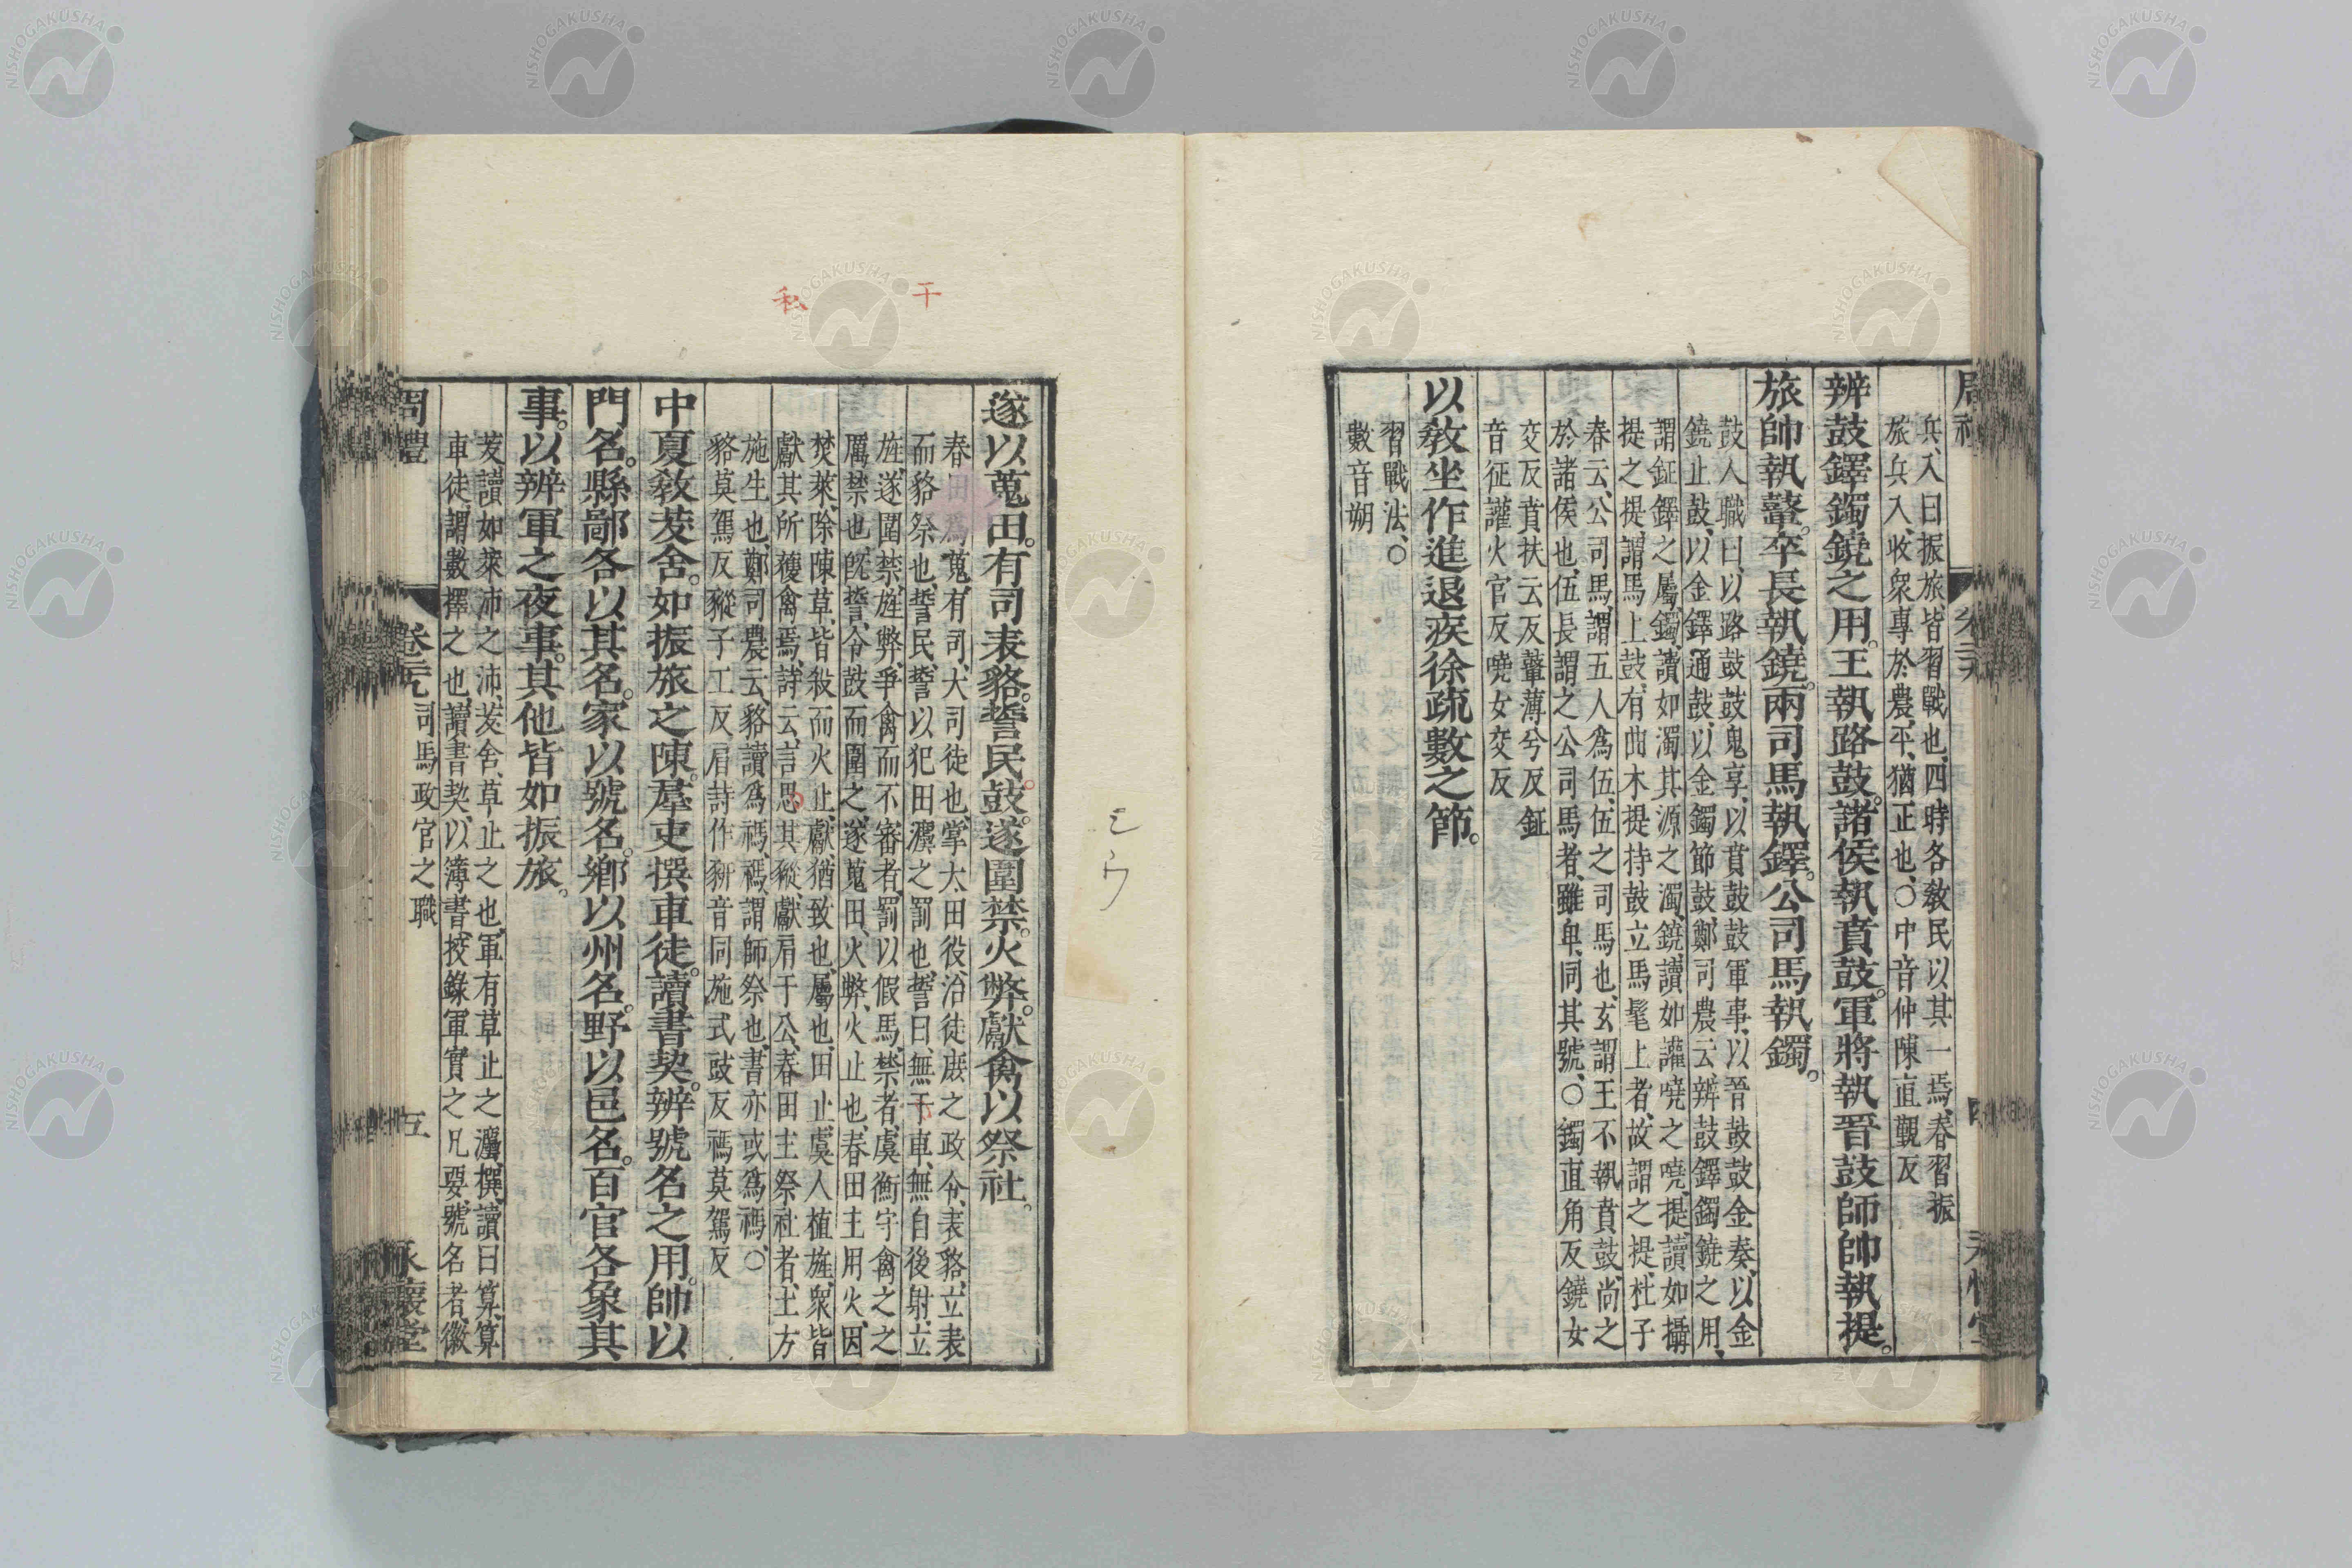 兵、入曰振旅、皆習戰也、四時各敎民以其一焉、春習振
旅、兵入、收衆專於農、平、猶正也、○中音仲陳直覲反
辨鼓鐸鐲鐃之用。王執路鼓。諸侯執賁鼓。軍將執晉鼓師帥執提。
旅帥執鼙。卒長執鐃。兩司馬執鐸。公司馬執鐲。
鼓人職曰、以路鼓鼓鬼享、以賁鼓鼓軍事、以晉鼓鼓金奏、以金
鐃止鼓、以金鐸通鼓、以金鐲節鼓、鄭司農云、辨鼓鐸鐲鐃之用、
謂鉦鐸之屬、鐲、讀如濁其源之濁、鐃、讀如讙嘵之嘵、提、讀如攝
提之提、謂馬上鼓、有曲木提持鼓立馬髦上者、故謂之提、杜子
春云、公司馬、謂五人爲伍、伍之司馬也、玄謂王不執賁鼓、尚之
於諸侯也、伍長謂之公司馬者、雖卑、同其號、○鐲直角反鐃女
交反賁扶云反鼙薄兮反鉦
音征讙火官反嘵女交反
以敎坐作進退疾徐疏數之節。
習戰法、○
數音朔
干
私
遂以蒐田。有司表貉。誓民。鼓。遂圍禁。火弊。獻禽以祭社。
春田爲蒐、有司、大司徒也、掌大田役、治徒庶之政令、表貉、立表
而貉祭也、誓民、誓以犯田灋之罰也、誓曰、無干車、無自後射、立
旌、遂圍禁、旌弊、爭禽而不審者、罰以假馬、禁者、虞衡守禽之
厲禁也、旣誓、令鼓而圍之、遂蒐田、火弊、火止也、春田主用火、因
焚萊、除陳草、皆殺而火止、獻猶致也、屬也、田止、虞人植旌、衆皆
獻其所獲禽焉、詩云、言思其豵、獻肩于公、春田主祭社者、土方
施生也、鄭司農云、貉讀爲禡、禡、謂師祭也、書亦或爲禡、○
貉莫駕反豵子工反肩詩作豣音同施式豉反禡莫駕反
中夏敎茇舍。如振旅之陳。羣吏撰車徒。讀書契。辨號名之用。帥以
門名。縣鄙各以其名。家以號名。鄕以州名。野以邑名。百官各象其
事。以辨軍之夜事。其他皆如振旅。
茇讀如萊沛之沛、茇舍、草止之也、軍有草止之灋、撰、讀曰算、算
車徒、謂數擇之也、讀書契、以簿書、挍錄軍實之凡要、號名者、徽
周禮 卷 司馬政官之職 五 永懷堂